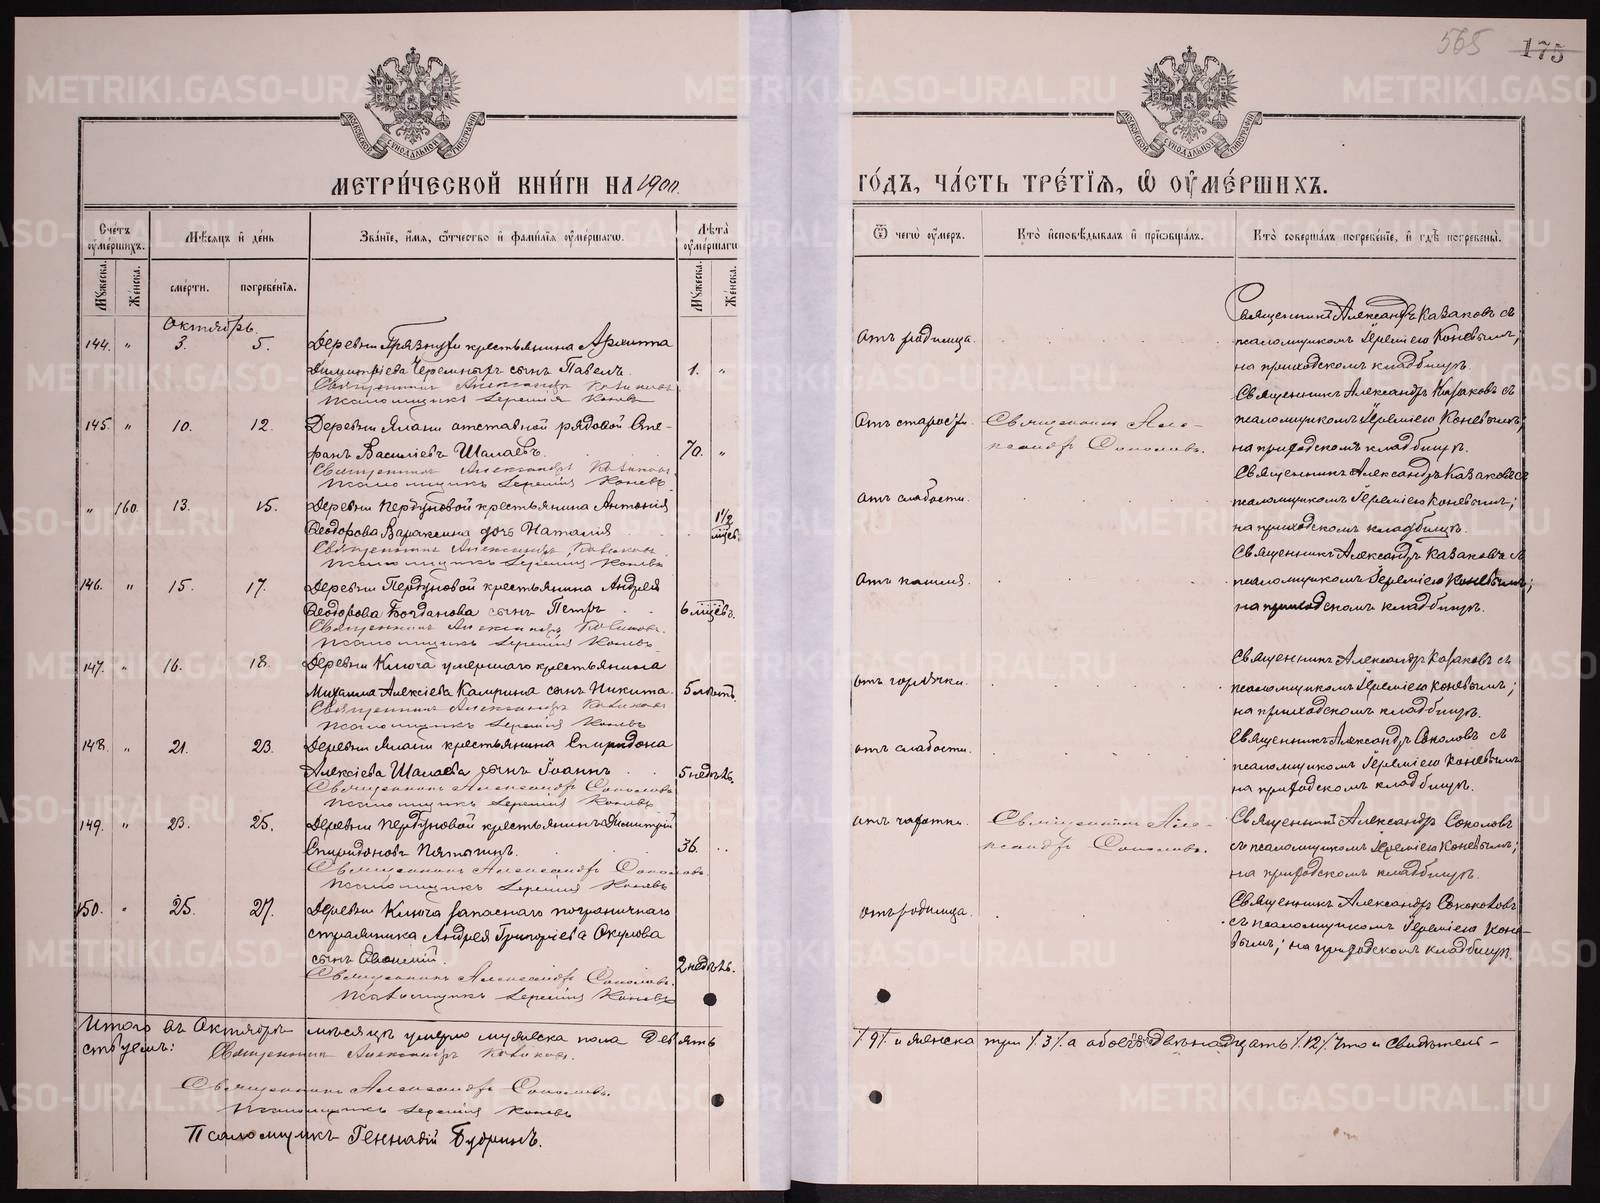 565 175
МЕТРИ́ЧЕСКОЙ КНИ́ГИ НА 1900
ГО́ДЪ, ЧА́СТЬ ТРЕ́ТІѦ, Ѡ ОУМЕ́РШИХЪ.
Сче́тъ оуме́ршихъ.
Мѣсяцъ и де́нь
Зва́ніе, и́мя, о́тчество и фами́лія оуме́ршаго.
Лѣта̀ оуме́ршаго
Ѿ чегѡ̀ оу́меръ.
Кто̀ исповѣ́дывалъ и приѻбща́лъ.
Кто̀ соверша́лъ погребе́ніе, и гдѣ̀ погребены̀.
Му́жеска.
Же́нска.
сме́рти.
погребе́нія.
Му́жеска.
Же́нска.
Октябрь.
144. " 3. 5. Деревни Грязнухи крестьянина Архипа
Димитріева Черемныхъ сынъ Павелъ. 1. "
Священникъ Александръ Казаковъ
Псаломщикъ Іеремія Коневъ
отъ родимца.
Священникъ Александръ Казаковъ съ
псаломщикомъ Іереміею Коневымъ;
на приходскомъ кладбищѣ.
145. " 10. 12. Деревни Ялани отставной рядовой Сте-
фанъ Василіевъ Шалаевъ. 70. "
Священникъ Александръ Казаковъ.
Псаломщикъ Іеремія Коневъ.
Отъ старости.
Священникъ Але-
ксандръ Соколовъ.
Священникъ Александръ Казаковъ съ
псаломщикомъ Іереміею Коневымъ;
на приходскомъ кладбищѣ.
" 160. 13. 15. Деревни Пердуновой крестьянина Антонія
Ѳеодорова Вараксина дочь Наталія 1 1/2 мѣсяц.
Священникъ Александръ Казаковъ.
Псаломщикъ Іеремія Коневъ
отъ слабости.
Священникъ Александръ Казаковъ съ
псаломщикомъ Іереміею Коневымъ;
на приходскомъ кладбищѣ.
146. " 15. 17. Деревни Пердуновой крестьянина Андрея
Ѳеодорова Богданова сынъ Петръ 6 мѣсяцевъ.
Священникъ Александръ Казаковъ.
Псаломщикъ Іеремія Коневъ
Отъ кашля.
Священникъ Александръ Казаковъ съ
псаломщикомъ Іереміею Коневымъ;
на приходскомъ кладбищѣ.
147. " 16. 18. Деревни Ключа умершаго крестьянина
Михаила Алексіева Калинина сынъ Никита 5 лѣтъ
Священникъ Александръ Казаковъ
Псаломщикъ Іеремія Коневъ
отъ горячки.
Священникъ Александръ Казаковъ съ
псаломщикомъ Іереміею Коневымъ;
на приходскомъ кладбищѣ.
148. " 21. 23. Деревни Ялани крестьянина Спиридона
Алексіева Шалаева сынъ Іоаннъ 5 недѣль.
Священникъ Александръ Соколовъ
Псаломщикъ Іеремія Коневъ
отъ слабости.
Священникъ Александръ Соколовъ съ
псаломщикомъ Іереміею Коневымъ
на приходскомъ кладбищѣ.
149. " 23. 25. Деревни Пердуновой крестьянинъ Димитрій
Спиридоновъ Пятыгинъ. 36. "
Священникъ Александръ Соколовъ
Псаломщикъ Іеремія Коневъ
отъ чахотки.
Священникъ Але-
ксандръ Соколовъ.
Священникъ Александръ Соколовъ
съ псаломщикомъ Іереміею Коневымъ;
на приходскомъ кладбищѣ.
150. " 25. 27. Деревни Ключа запаснаго пограничнаго
стражника Андрея Григоріева Окулова
сынъ 2 недѣль.
Священникъ Александръ Соколовъ.
Псаломщикъ Іеремія Коневъ
отъ родимца.
Священникъ Александръ Соколовъ
съ псаломщикомъ Іереміею Коне-
вымъ; на приходскомъ кладбищѣ.
Итого въ Октябрѣ мѣсяцѣ умерло мужеска пола девять /9/ и женска три /3/ а обоего двѣнадцать /12/ Что и свидѣтель-
ствуемъ: Священникъ Александръ Казаковъ.
Священникъ Александръ Соколовъ.
Псаломщикъ Іеремія Коневъ
Псаломщикъ Геннадій Будринъ.
METRIKI.GASO-URAL.RU